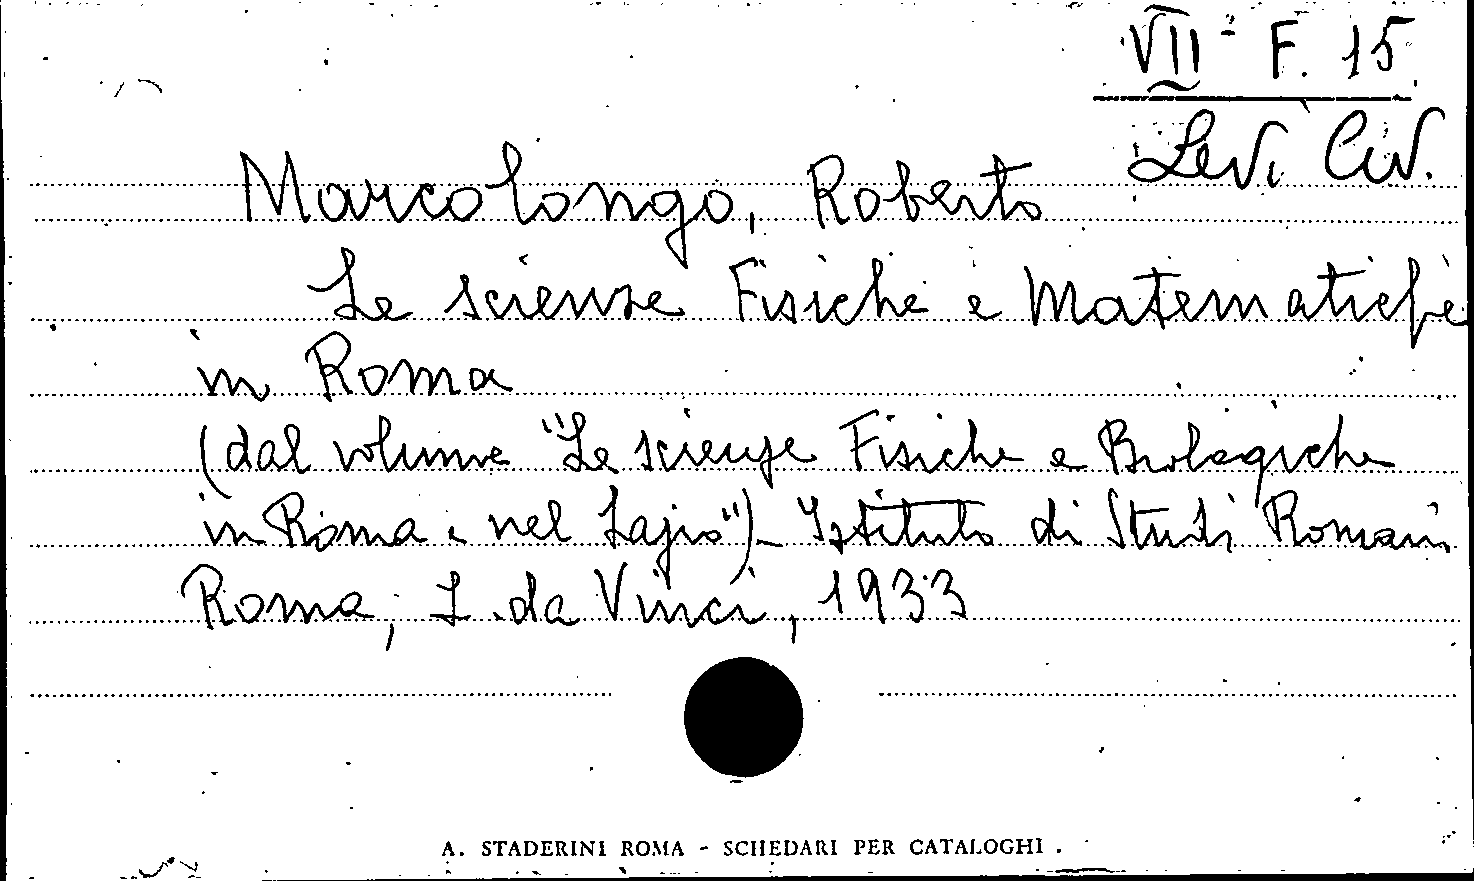 VII - F. 15
Levi Civ.
Marcolongo, Roberto
Le scienze Fisiche e Matematiche
in Roma
(dal volume "Le scienze Fisiche e Biologiche
in Roma e nel Lazio") - Istituto di Studi Romani
Roma, L. da Vinci, 1933
A. STADERINI ROMA - SCHEDARI PER CATALOGHI .